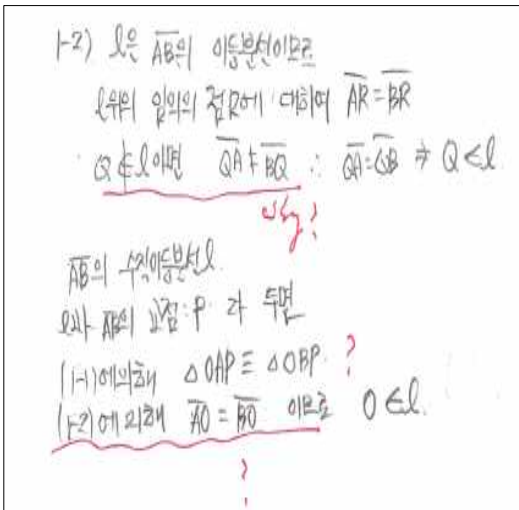 1-2) l은 AB의 이등분선이므로
l위의 임의의 점R에 대하여 AR = BR
Q ∉ l 이면 QA ≠ BQ ∴ QA = QB ⇒ Q ∈ l
why?
AB의 수직이등분선 l.
l과 AB의 교점: P 라 두면
(1-1)에의해 △OAP ≡ △OBP. ?
(1-2)에 의해 AO = BO 이므로 O ∈ l.
?